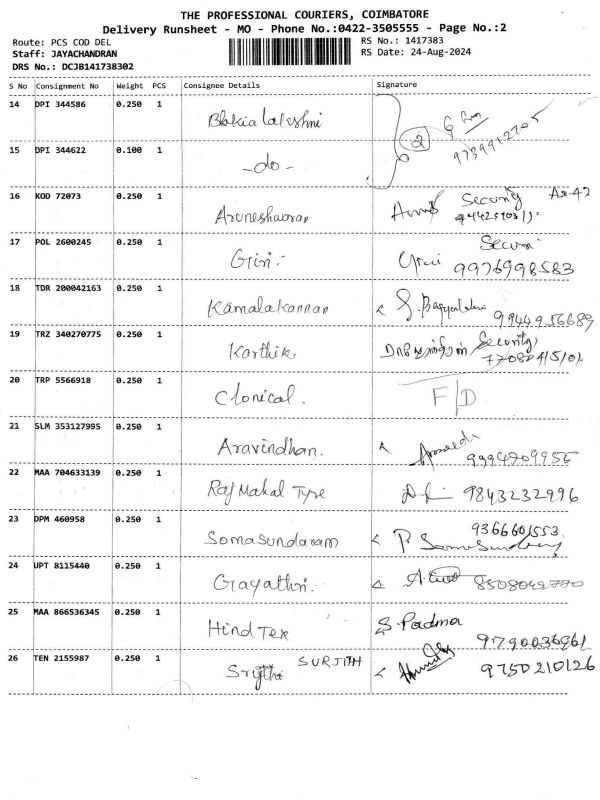 THE PROFESSIONAL COURIERS, COIMBATORE
Delivery Runsheet - MO - Phone No.:0422-3505555 - Page No.:2
Route: PCS COD DEL RS No.: 1417383
Staff: JAYACHANDRAN RS Date: 24-Aug-2024
DRS No.: DCJB141738302
S No Consignment No Weight PCS Consignee Details Signature
14 DPI 344586 0.250 1 Lakshmi 2
15 DPI 344622 0.100 1 -do-
16 KOD 72073 0.250 1 Aruneshwaran Security
17 POL 2600245 0.250 1 Giri 9976998583
18 TDR 200042163 0.250 1 Kamalakannan 9944956689
19 TRZ 340270775 0.250 1 Karthik Security
20 TRP 5566918 0.250 1 Clonical. F/D
21 SLM 353127995 0.250 1 Aravindhan.
22 MAA 704633139 0.250 1 Raj Mahal Tyre 9843232996
23 DPM 460958 0.250 1 Somasundaram 9366601553
24 UPT 8115440 0.250 1 Gayathri
25 MAA 866536345 0.250 1 Hind Tex S. Padma 9790036961
26 TEN 2155987 0.250 1 SURJITH 9750210126